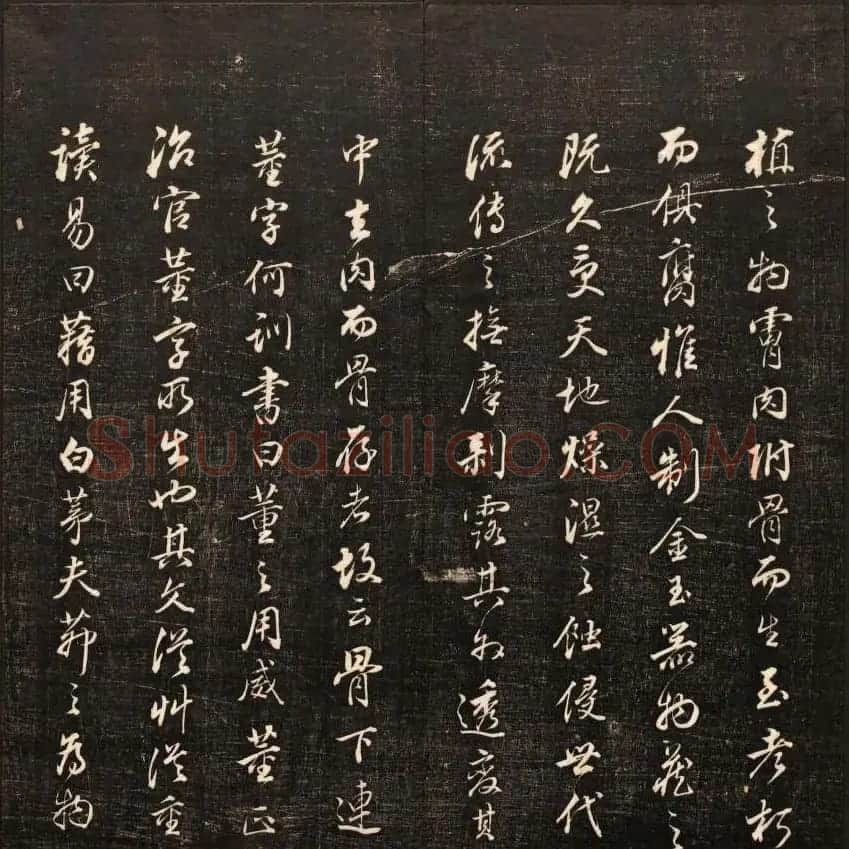 植之物霄肉附骨而生至老朽
而俱腐惟人制金玉器物藏之
既久更天地燥濕之蝕侵世代
流傳之撫摩剥露其外透變其
中去肉而骨存者故云骨下連
董字何訓書曰董之用威董正
治官董字所生也其文從艸從重
讀易曰藉用白茅夫茅之為物
Shutaziliao.COM